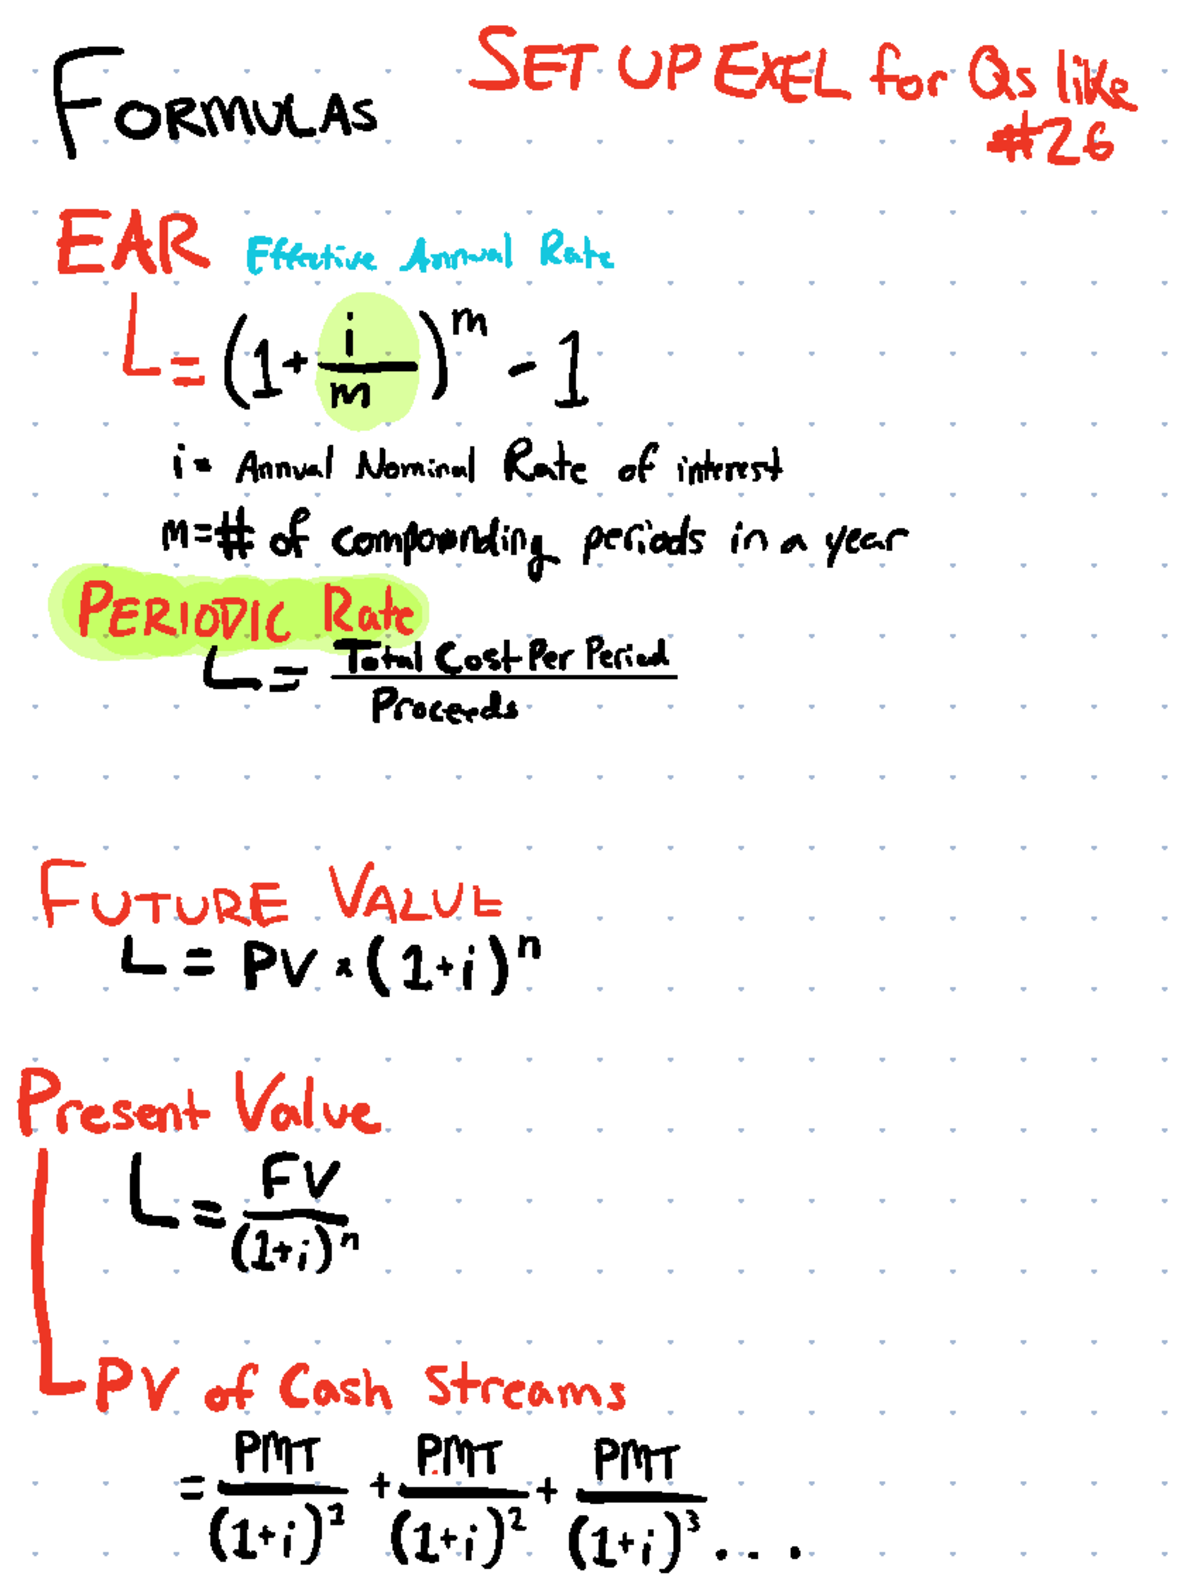 FORMULAS
SET UP EXEL for Qs like
#26
EAR Effective Annual Rate
L= (1+ i/m)^m - 1
i = Annual Nominal Rate of interest
m = # of compounding periods in a year
PERIODIC Rate
L= Total Cost Per Period
Proceeds
FUTURE VALUE
L= PV × (1+i)^n
Present Value
L= FV
(1+i)^n
PV of Cash Streams
= PMT/(1+i)^1 + PMT/(1+i)^2 + PMT/(1+i)^3 ...